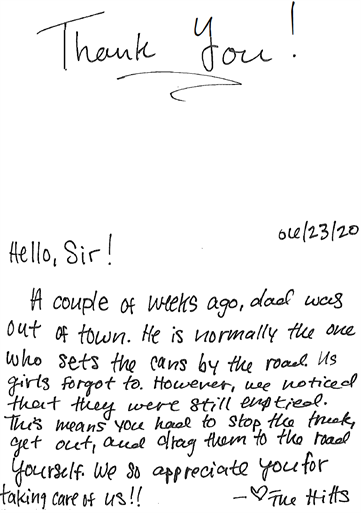 Thank You!
06/23/20
Hello, Sir!
A couple of weeks ago, dad was
out of town. He is normally the one
who sets the cans by the road. Us
girls forgot to. However, we noticed
that they were still emptied.
This means you had to stop the truck,
get out, and drag them to the road
yourself. We so appreciate you for
taking care of us!! -♡ The Hitts